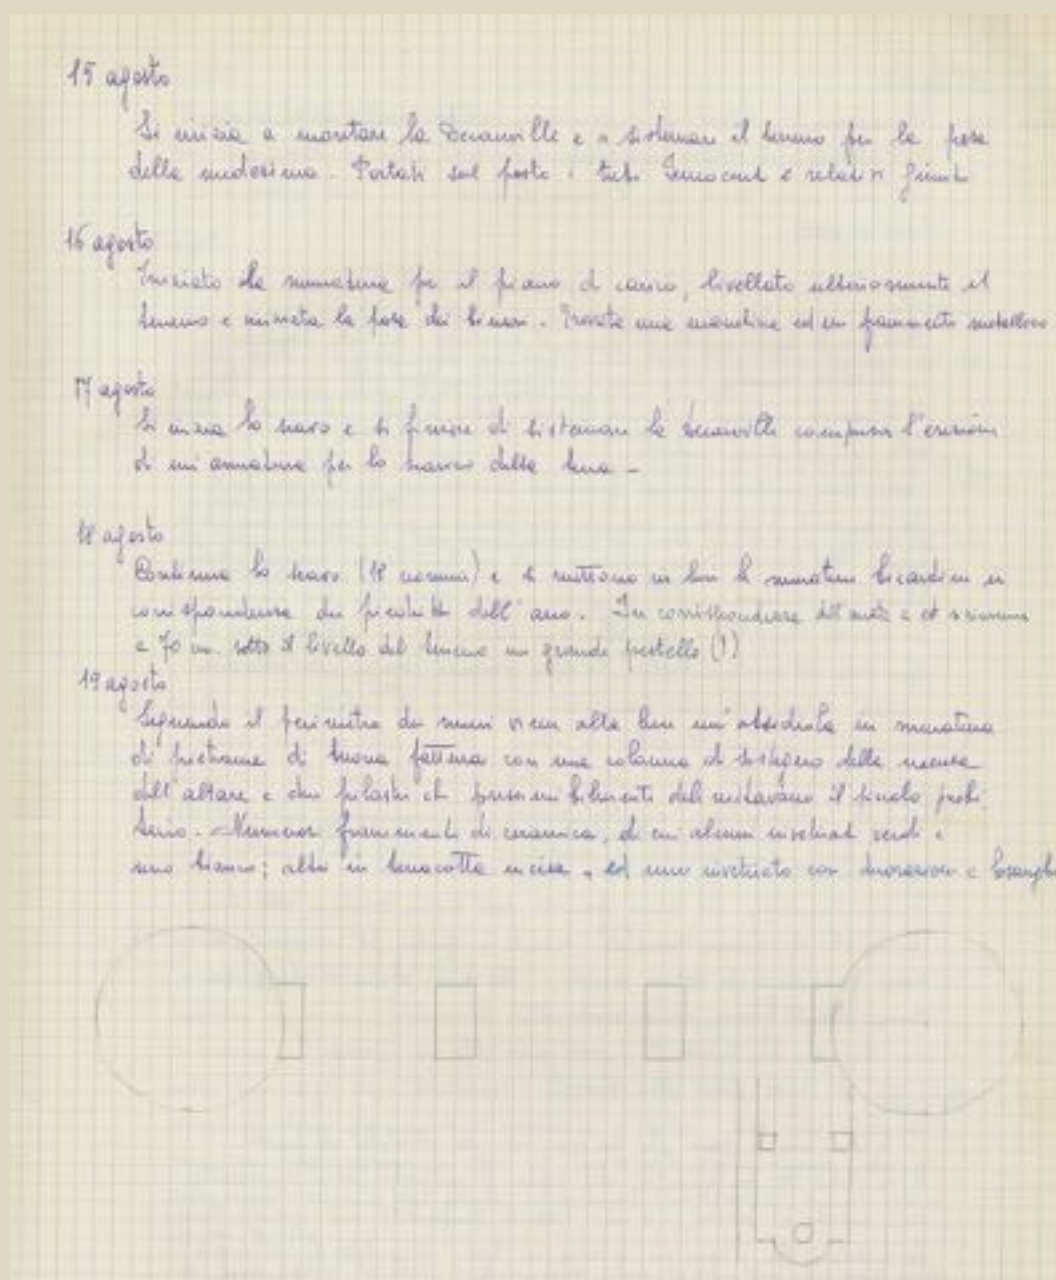 15 agosto
Si inizia a montare la Decauville e a sistemare il terreno per la posa
della medesima. Portati sul posto i tubi Innocenti e relativi giunti
16 agosto
Iniziata la muratura per il piano di carico, livellato ulteriormente il
terreno e iniziata la posa dei binari. Trovate una monetina ed un frammento metallico
17 agosto
Si inizia lo scavo e si finisce di sistemare la Decauville compresa l'erezione
di un'armatura per lo scarico della terra -
18 agosto
Continua lo scavo (18 uomini) e si mettono in luce le murature in
corrispondenza dei picchetti dell'area. In corrispondenza dell'
a 70 cm. sotto il livello del terreno un grande pestello (!)
19 agosto
Seguendo il perimetro dei muri viene alla luce un'absidiola in muratura
di pietrame di buona fattura con una colonna di sostegno della mensa
dell'altare e due pilastri che presumibilmente delimitavano il piccolo presbi
terio. Numerosi frammenti di ceramica, di cui alcuni invetriati verdi e
uno bianco; altri in terracotta incisa, ed uno invetriato con decorazione a losanghe